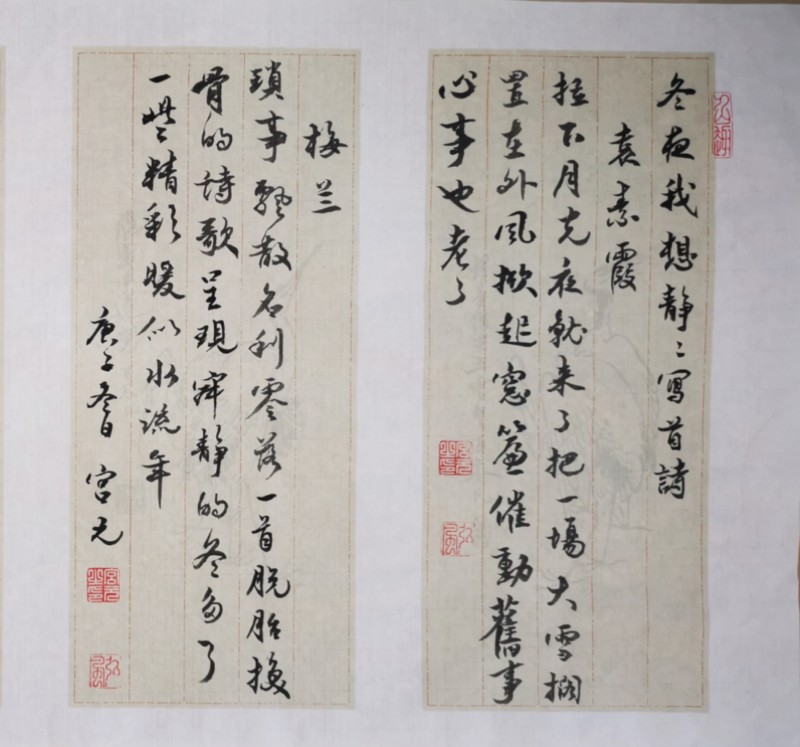 冬夜我想静〻寫首詩
袁素霞
拉下月光夜就来了把一場大雪擱
置在外风掀起窓簾催動舊事
心事也老了
梅兰
瑣事飘散名利零落一首脱胎换
骨的詩歌呈現寧静的冬多了
一些精彩暖似水流年
庚子冬日 宫元